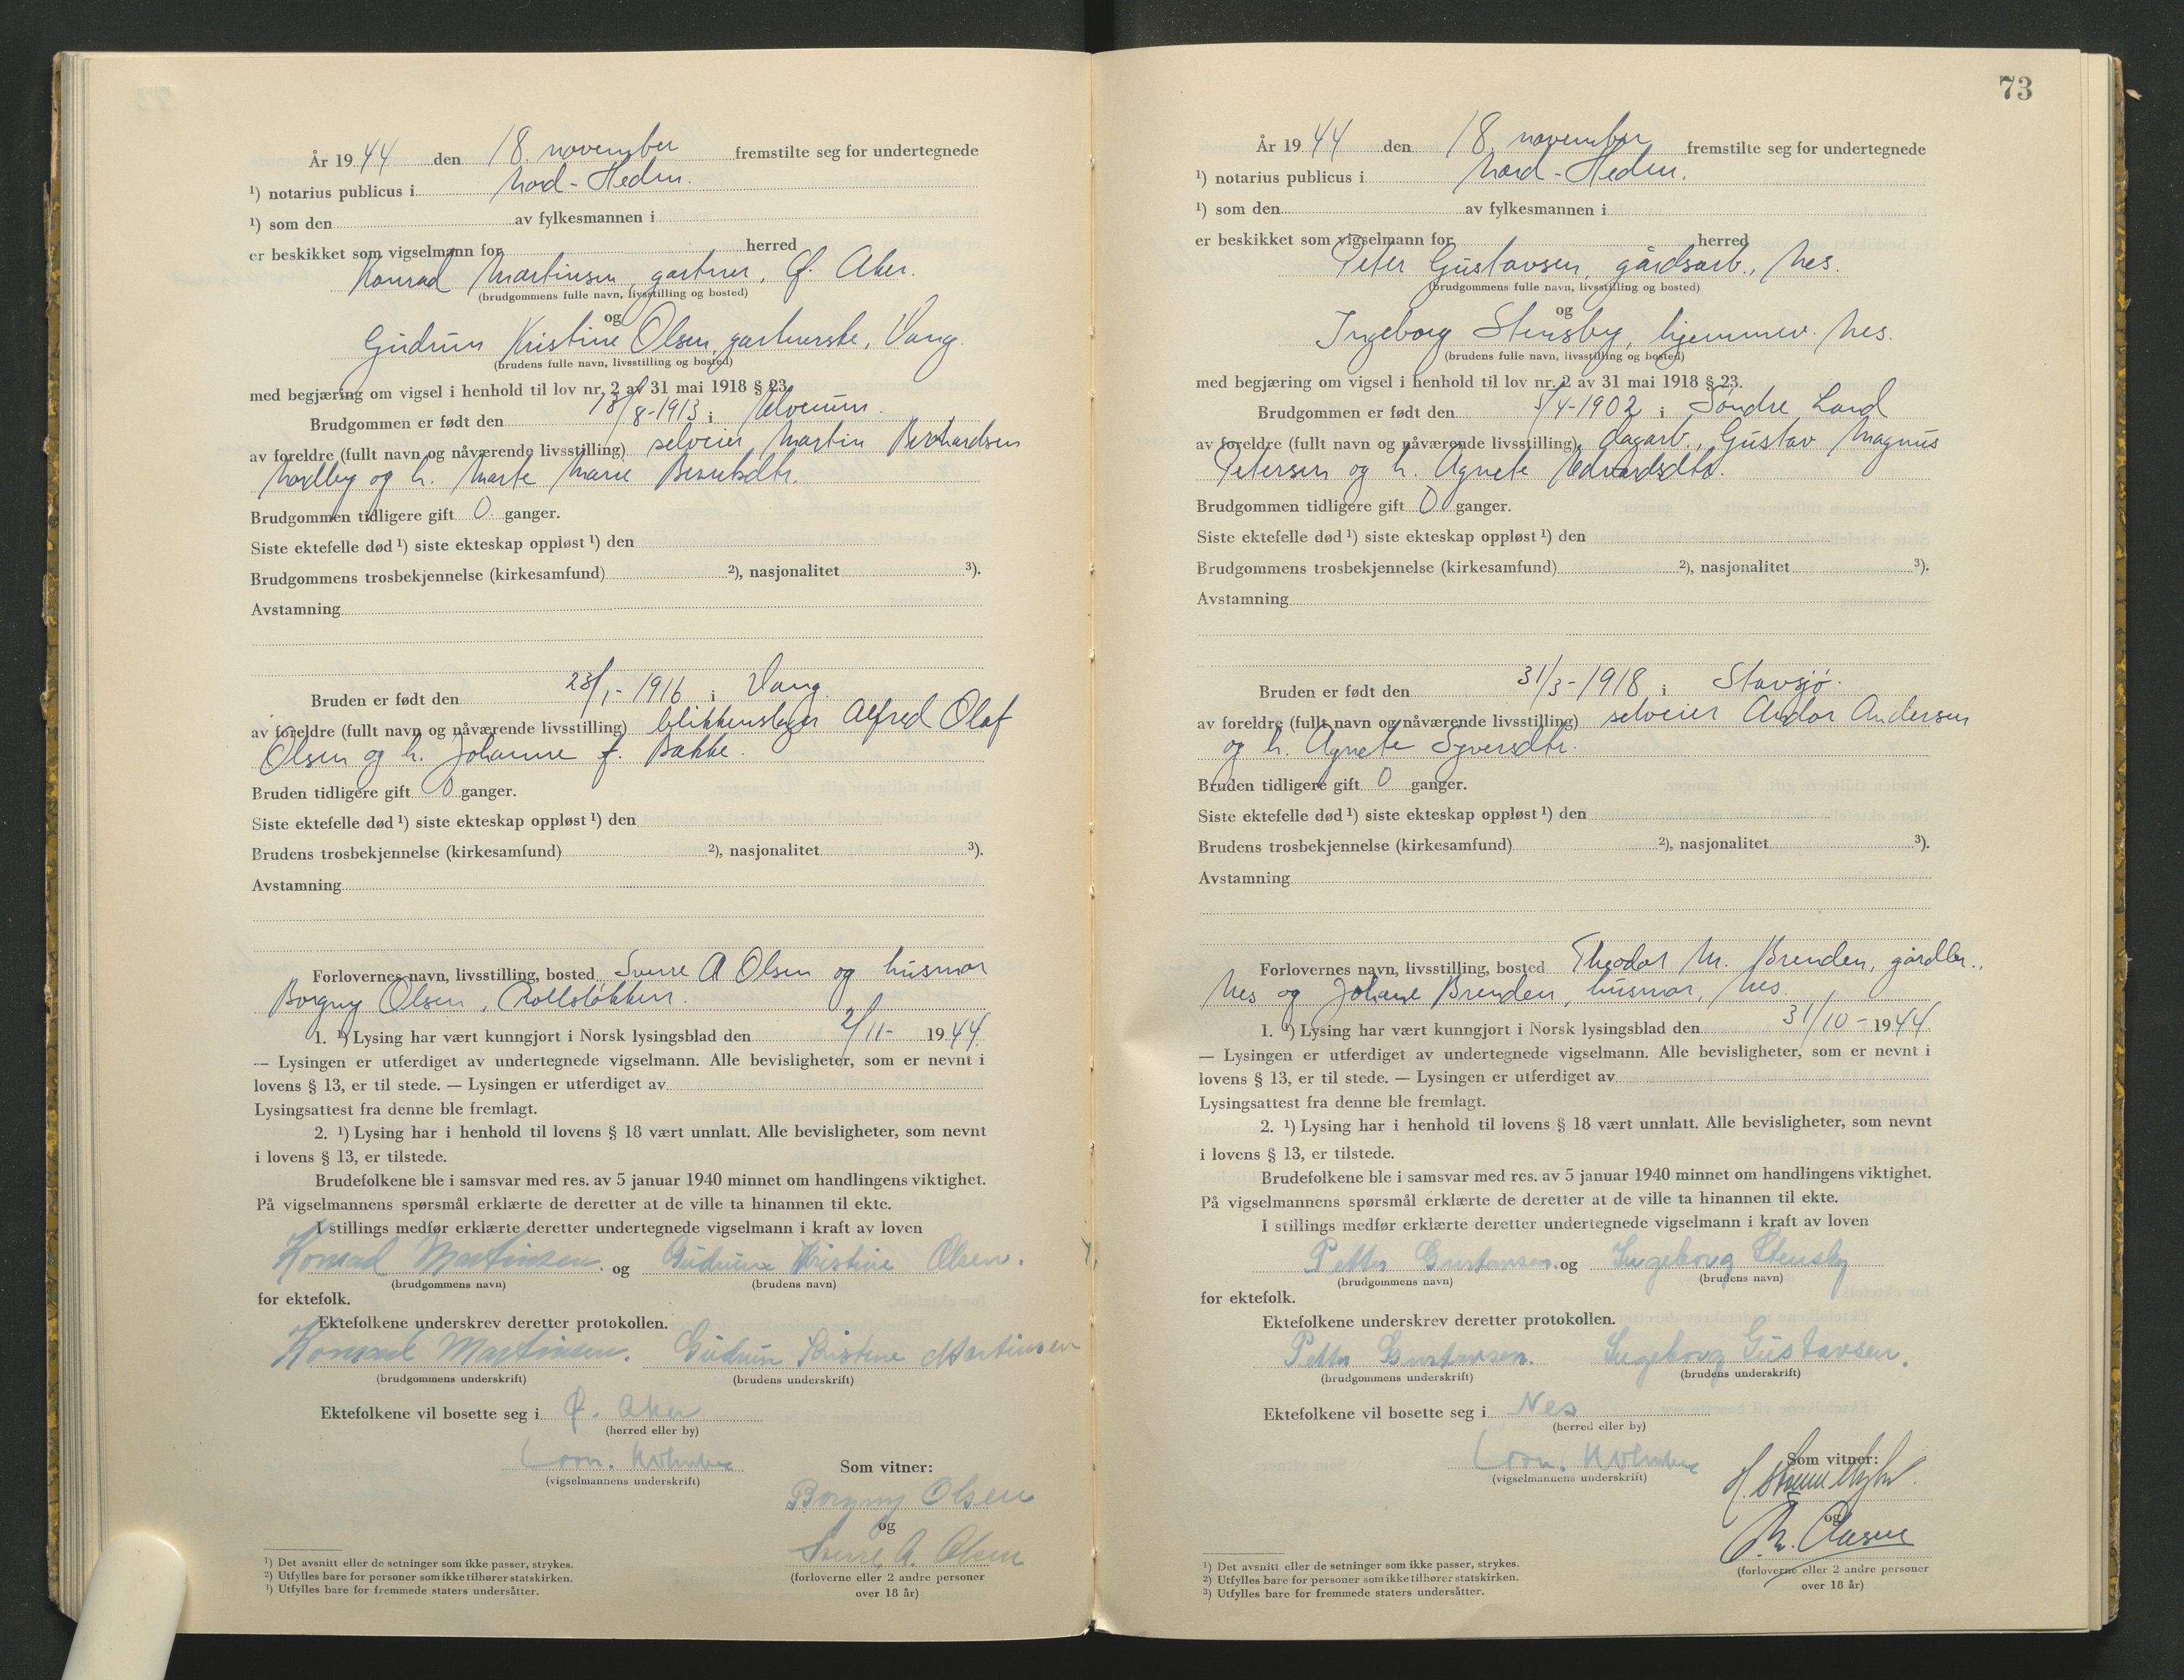 År 19 44 den 18. november fremstilte seg for undertegnede
¹) notarius publicus i Nord-Hedm.
¹) som den av fylkesmannen i
er beskikket som vigselmann for herred
Konrad Martinsen, gartner, Ø. Aker.
(brudgommens fulle navn, livsstilling og bosted)
og
Gudrun Kristine Olsen, gartnerske, Vang.
(brudens fulle navn, livsstilling og bosted)
med begjæring om vigsel i henhold til lov nr. 2 av 31 mai 1918 § 23.
Brudgommen er født den 18/8-1913 i Elverum.
av foreldre (fullt navn og nåværende livsstilling) selveier Martin Bernhardsen
Nordby og h. Marte Marie Berntsdtr.
Brudgommen tidligere gift 0 ganger.
Siste ektefelle død ¹) siste ekteskap oppløst ¹) den
Brudgommens trosbekjennelse (kirkesamfund) ²), nasjonalitet ³).
Avstamning
Bruden er født den 23/1-1916 i Vang.
av foreldre (fullt navn og nåværende livsstilling) blikkenslager Alfred Olaf
Olsen og h. Johanne f. Bakke.
Bruden tidligere gift 0 ganger.
Siste ektefelle død ¹) siste ekteskap oppløst ¹) den
Brudens trosbekjennelse (kirkesamfund) ²), nasjonalitet ³).
Avstamning
Forlovernes navn, livsstilling, bosted Sverre A Olsen og husmor
Borgny Olsen,
1. ¹) Lysing har vært kunngjort i Norsk lysingsblad den 2/11- 1944.
— Lysingen er utferdiget av undertegnede vigselmann. Alle bevisligheter, som er nevnt i
lovens § 13, er til stede. — Lysingen er utferdiget av
Lysingsattest fra denne ble fremlagt.
2. ¹) Lysing har i henhold til lovens § 18 vært unnlatt. Alle bevisligheter, som nevnt
i lovens § 13, er tilstede.
Brudefolkene ble i samsvar med res. av 5 januar 1940 minnet om handlingens viktighet.
På vigselmannens spørsmål erklærte de deretter at de ville ta hinannen til ekte.
I stillings medfør erklærte deretter undertegnede vigselmann i kraft av loven
Konrad Martinsen. og Gudrun Kristine Olsen.
(brudgommens navn) (brudens navn)
for ektefolk.
Ektefolkene underskrev deretter protokollen.
Konrad Martinsen. Gudrun Kristine Martinsen
(brudgommens underskrift) (brudens underskrift)
Ektefolkene vil bosette seg i Ø. Aker
(herred eller by)
(vigselmannens underskrift)
Som vitner:
Borgny Olsen
og
Sverre A. Olsen
(forloverne eller 2 andre personer
over 18 år)
¹) Det avsnitt eller de setninger som ikke passer, strykes.
²) Utfylles bare for personer som ikke tilhører statskirken.
³) Utfylles bare for fremmede staters undersåtter.
73
År 19 44 den 18. november fremstilte seg for undertegnede
¹) notarius publicus i Nord-Hedm.
¹) som den av fylkesmannen i
er beskikket som vigselmann for herred
Peter Gustavsen, gårdsarb., Nes.
(brudgommens fulle navn, livsstilling og bosted)
og
Ingeborg Stensby, hjemmev. Nes.
(brudens fulle navn, livsstilling og bosted)
med begjæring om vigsel i henhold til lov nr. 2 av 31 mai 1918 § 23.
Brudgommen er født den 5/4-1902 i Søndre Land
av foreldre (fullt navn og nåværende livsstilling) dagarb., Gustav Magnus
Petersen og h. Agnete Edvardsdtr.
Brudgommen tidligere gift 0 ganger.
Siste ektefelle død ¹) siste ekteskap oppløst ¹) den
Brudgommens trosbekjennelse (kirkesamfund) ²), nasjonalitet ³).
Avstamning
Bruden er født den 31/3-1918 i Stavsjø.
av foreldre (fullt navn og nåværende livsstilling) selveier Andor Andersen
og h. Agnete Syversdtr.
Bruden tidligere gift 0 ganger.
Siste ektefelle død ¹) siste ekteskap oppløst ¹) den
Brudens trosbekjennelse (kirkesamfund) ²), nasjonalitet ³).
Avstamning
Forlovernes navn, livsstilling, bosted Theodor M. Brenden,
Nes og Johane Brenden, husmor, Nes.
1. ¹) Lysing har vært kunngjort i Norsk lysingsblad den 31/10- 1944.
— Lysingen er utferdiget av undertegnede vigselmann. Alle bevisligheter, som er nevnt i
lovens § 13, er til stede. — Lysingen er utferdiget av
Lysingsattest fra denne ble fremlagt.
2. ¹) Lysing har i henhold til lovens § 18 vært unnlatt. Alle bevisligheter, som nevnt
i lovens § 13, er tilstede.
Brudefolkene ble i samsvar med res. av 5 januar 1940 minnet om handlingens viktighet.
På vigselmannens spørsmål erklærte de deretter at de ville ta hinannen til ekte.
I stillings medfør erklærte deretter undertegnede vigselmann i kraft av loven
Petter Gustavsen. og Ingeborg Stensby
(brudgommens navn) (brudens navn)
for ektefolk.
Ektefolkene underskrev deretter protokollen.
Petter Gustavsen. Ingeborg Gustavsen.
(brudgommens underskrift) (brudens underskrift)
Ektefolkene vil bosette seg i Nes
(herred eller by)
(vigselmannens underskrift)
Som vitner:
og
(forloverne eller 2 andre personer
over 18 år)
¹) Det avsnitt eller de setninger som ikke passer, strykes.
²) Utfylles bare for personer som ikke tilhører statskirken.
³) Utfylles bare for fremmede staters undersåtter.